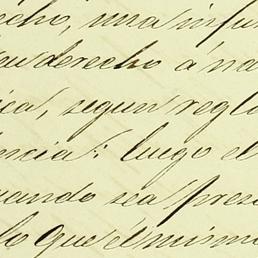 echo, una infun
su derecho á na
ica, segun regla
encia: luego el
uando sea pres
lo que él mismo